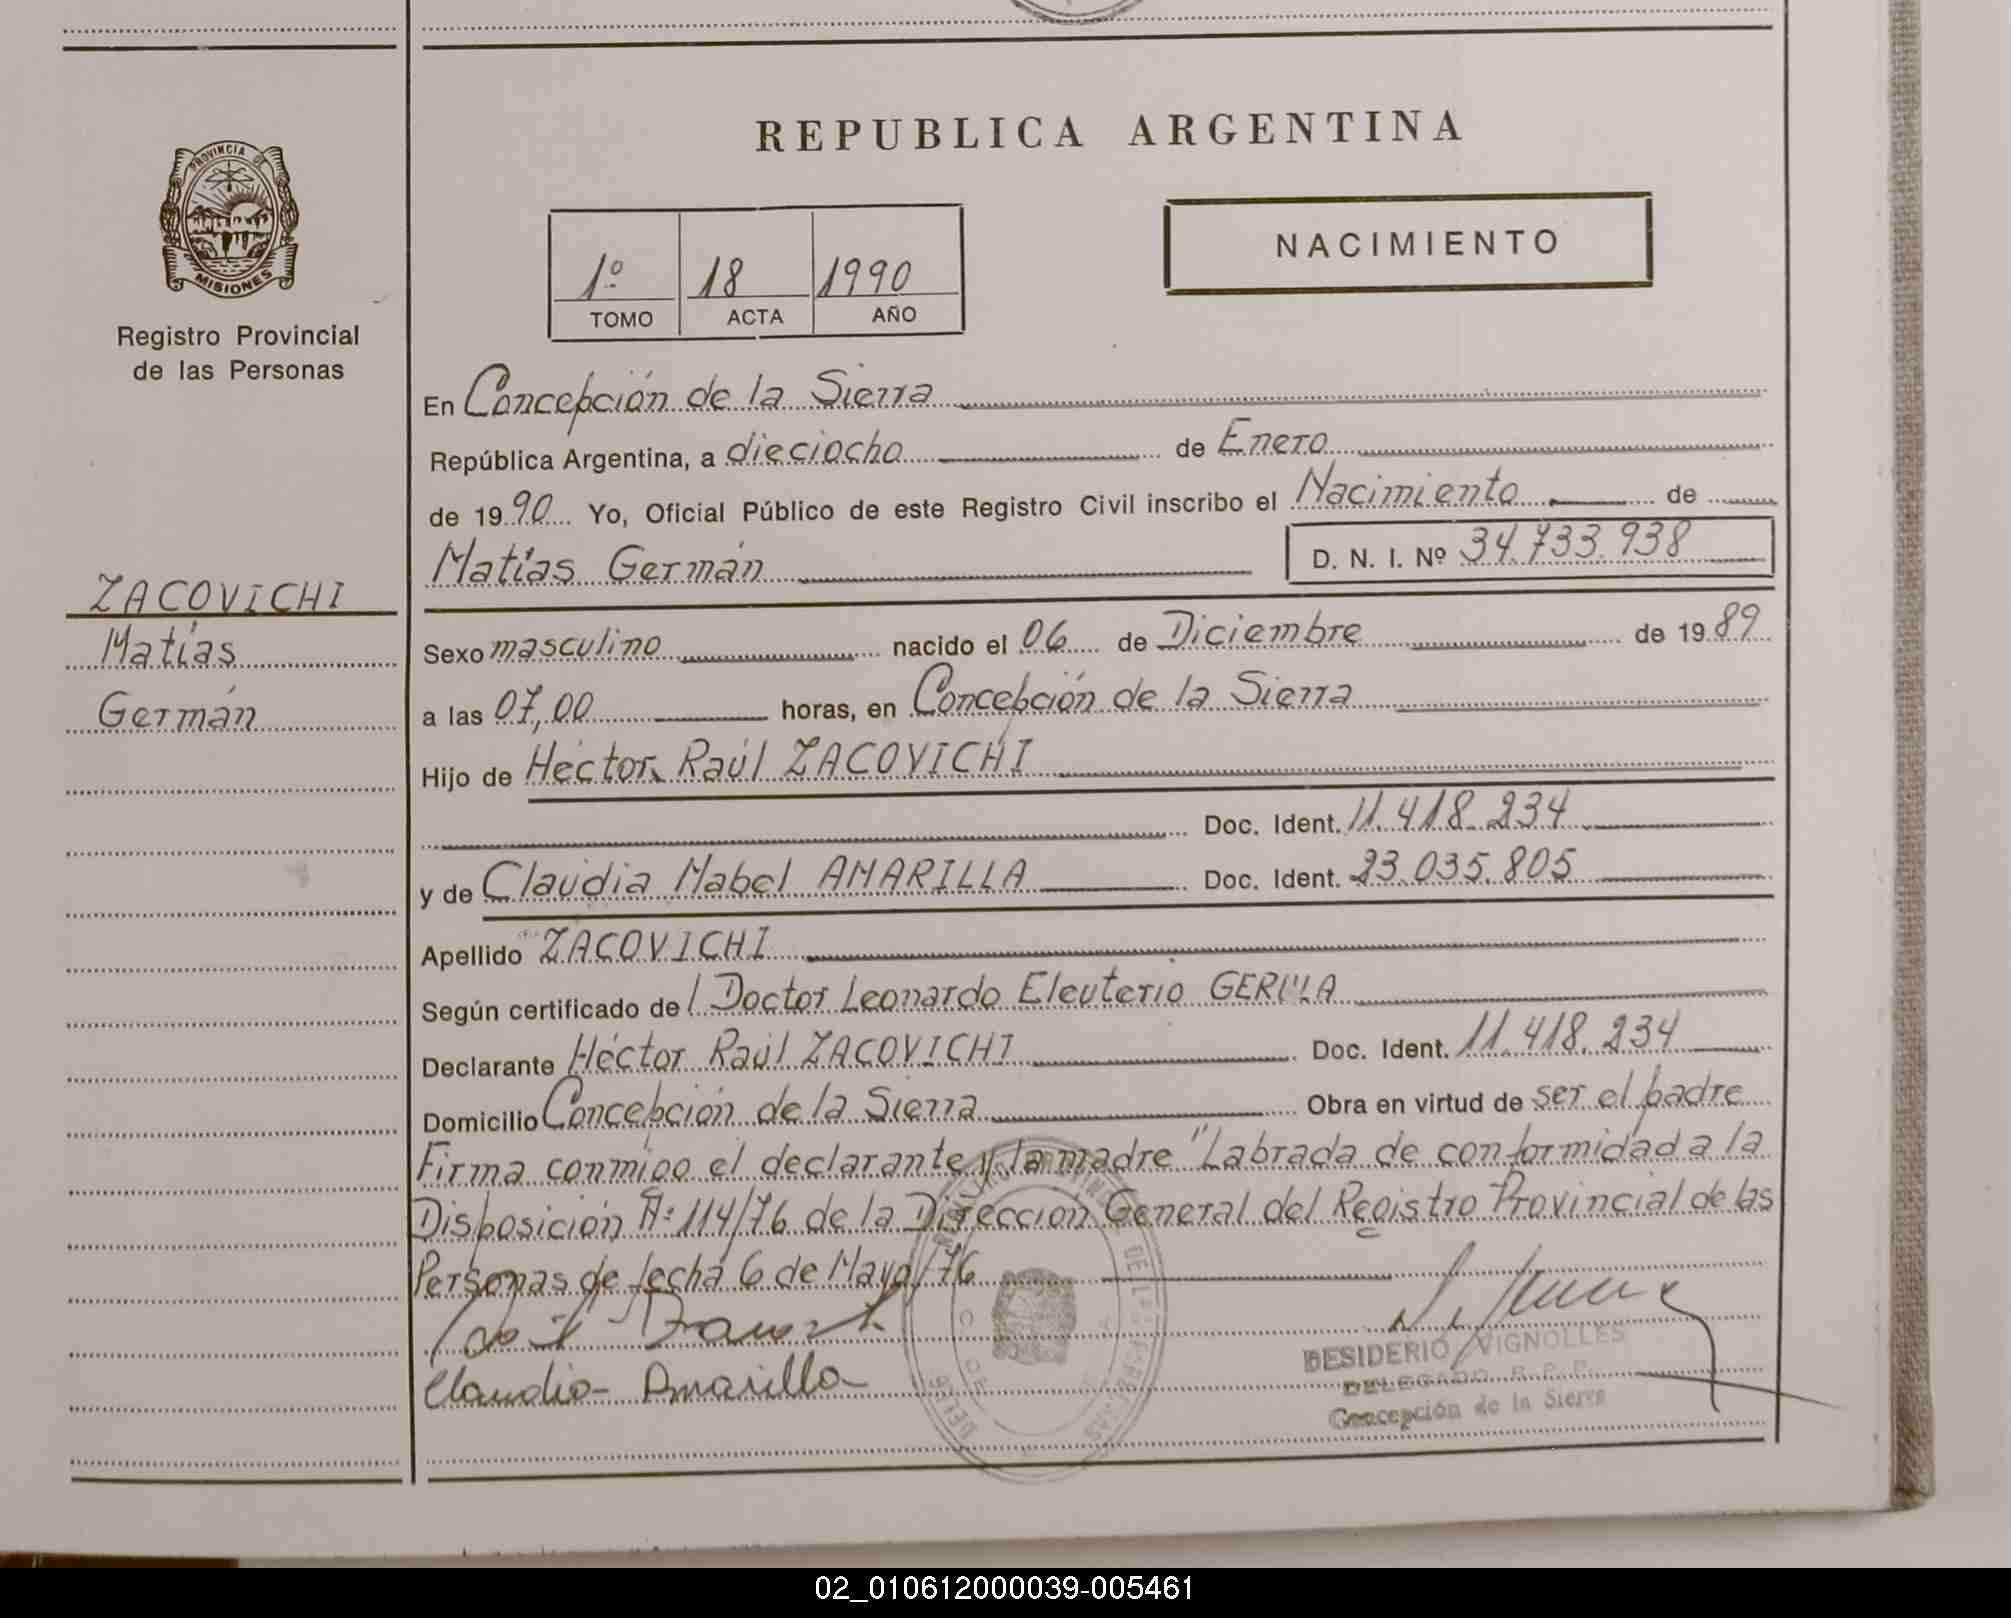 REPUBLICA ARGENTINA
PROVINCIA DE
MISIONES
Registro Provincial
de las Personas
1º 18 1990
TOMO ACTA AÑO
NACIMIENTO
En Concepción de la Sierra
República Argentina, a dieciocho de Enero
de 1990 Yo, Oficial Público de este Registro Civil inscribo el Nacimiento de
Matías Germán D. N. I. Nº 34.733.938
ZACOVICHI
Matías
Germán
Sexo masculino nacido el 06 de Diciembre de 1989
a las 07,00 horas, en Concepción de la Sierra
Hijo de Héctor Raúl ZACOVICHI
Doc. Ident. 11.418.234
y de Claudia Mabel AMARILLA Doc. Ident. 23.035.805
Apellido ZACOVICHI
Según certificado del Doctor Leonardo Eleuterio
Declarante Héctor Raúl ZACOVICHI Doc. Ident. 11.418.234
Domicilio Concepción de la Sierra Obra en virtud de ser el padre
Firma conmigo el declarante y la madre "Labrada de conformidad a la
Disposición Nº 114/76 de la Dirección General del Registro Provincial de las
Personas de fecha 6 de Mayo/76
Claudia Amarilla
DESIDERIO VIGNOLLES
DELEGADO R. P. P.
Concepción de la Sierra
02_010612000039-005461